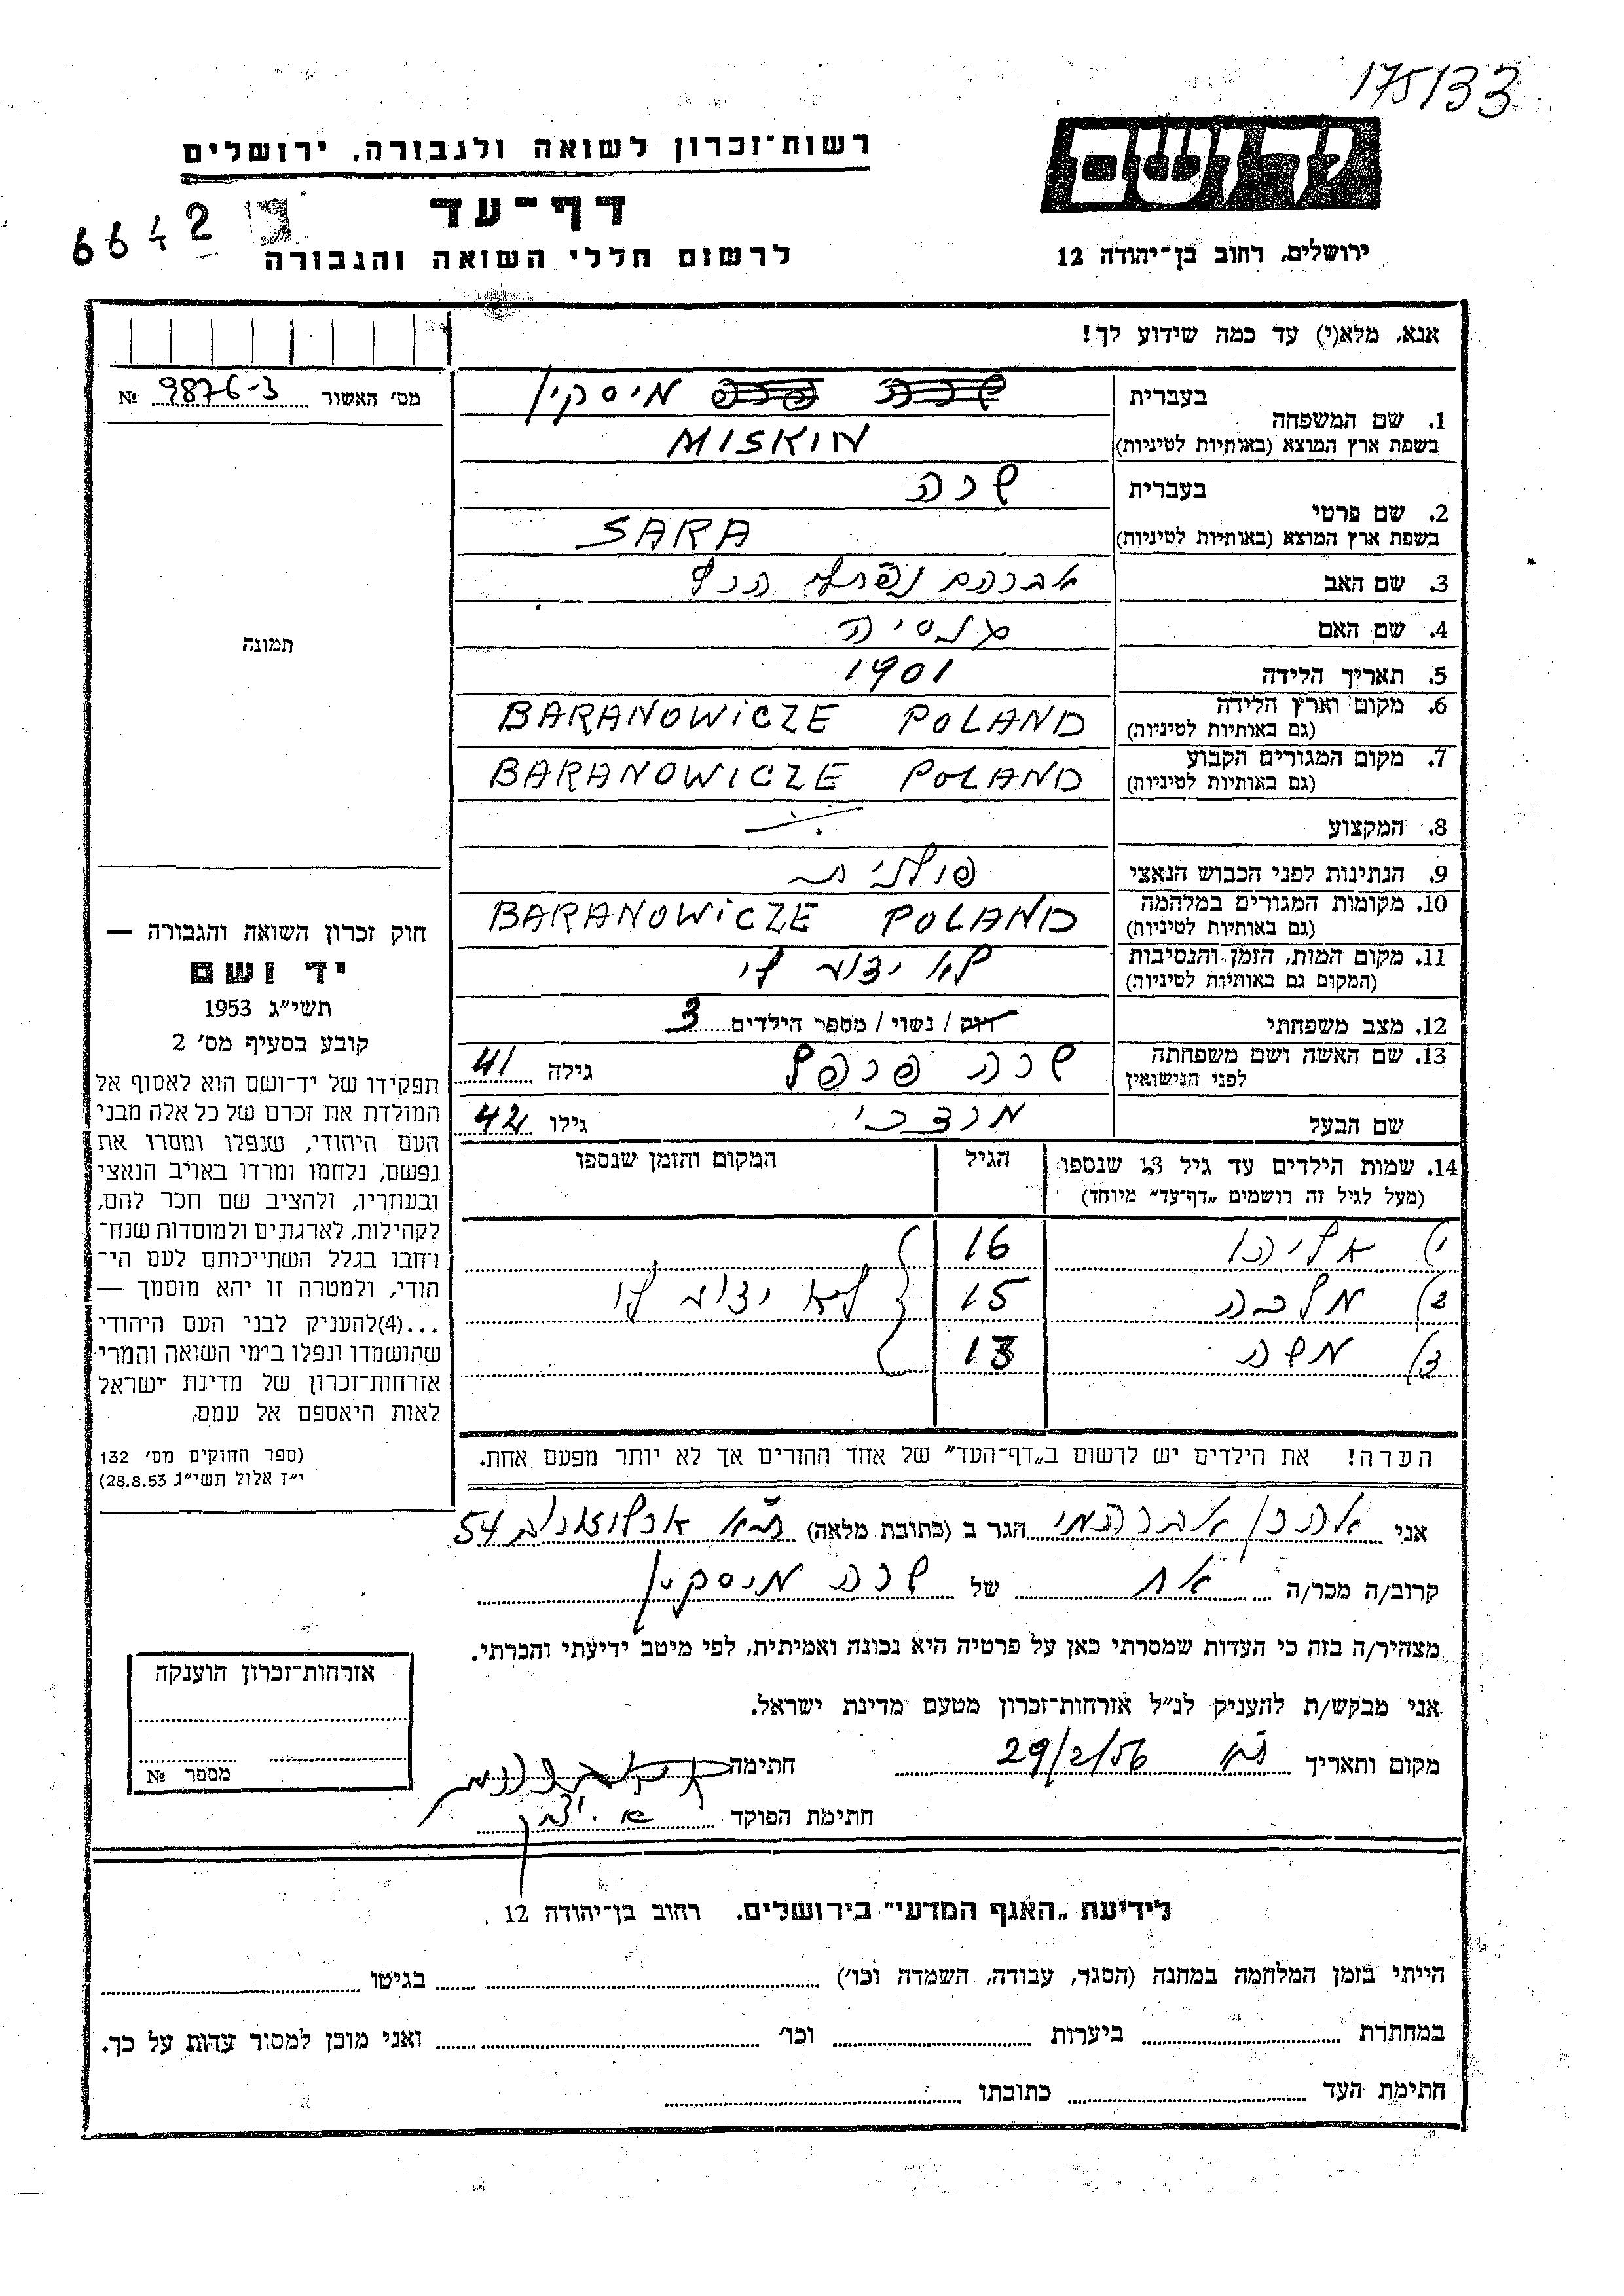 175/33
ידושם
רשות־זכרון לשואה ולגבורה, ירושלים
דף־עד
6642
לרשום חללי השואה והגבורה
ירושלים, רחוב בן־יהודה 12
אנא, מלא(י) עד כמה שידוע לך!
מס׳ האשור 9876-3 №
1. שם המשפחה
בעברית שרה מיסקין
בשפת ארץ המוצא (באותיות לטיניות) MISKIN
2. שם פרטי
בעברית שרה
בשפת ארץ המוצא (באותיות לטיניות) SARA
3. שם האב אברהם נפתלי הרץ
4. שם האם
5. תאריך הלידה 1901
6. מקום וארץ הלידה
(גם באותיות לטיניות) BARANOWICZE POLAND
7. מקום המגורים הקבוע
(גם באותיות לטיניות) BARANOWICZE POLAND
8. המקצוע
9. הנתינות לפני הכבוש הנאצי פולנית
10. מקומות המגורים במלחמה
(גם באותיות לטיניות) BARANOWICZE POLAND
11. מקום המות, הזמן והנסיבות
(המקום גם באותיות לטיניות) לא ידוע לי
12. מצב משפחתי רווק / נשוי / מספר הילדים 3
13. שם האשה ושם משפחתה
לפני הנישואין שרה פרפל גילה 41
שם הבעל מרדכי גילו 42
14. שמות הילדים עד גיל 18 שנספו הגיל המקום והזמן שנספו
(מעל לגיל זה רושמים „דף־עד״ מיוחד)
1) אליהו 16
2) מלכה 15 לא ידוע לי
3) משה 13
הערה! את הילדים יש לרשום ב„דף־העד״ של אחד ההורים אך לא יותר מפעם אחת.
תמונה
חוק זכרון השואה והגבורה —
יד ושם
תשי״ג 1953
קובע בסעיף מס׳ 2
תפקידו של יד־ושם הוא לאסוף אל
המולדת את זכרם של כל אלה מבני
העם היהודי, שנפלו ומסרו את
נפשם, נלחמו ומרדו באויב הנאצי
ובעוזריו, ולהציב שם וזכר להם,
לקהילות, לארגונים ולמוסדות שנח־
רחבו בגלל השתייכותם לעם הי־
הודי, ולמטרה זו יהא מוסמך —
...(4)להעניק לבני העם היהודי
שהושמדו ונפלו בימי השואה והמרי
אזרחות־זכרון של מדינת ישראל
לאות היאספם אל עמם.
(ספר החוקים מס׳ 132
י״ז אלול תשי״ג 28.8.53)
אני אהרן אברהמי הגר ב (כתובת מלאה) ת״א ארלוזורוב 54
קרוב/ה מכר/ה אח של שרה מיסקין
מצהיר/ה בזה כי העדות שמסרתי כאן על פרטיה היא נכונה ואמיתית, לפי מיטב ידיעתי והכרתי.
אני מבקש/ת להעניק לנ״ל אזרחות־זכרון מטעם מדינת ישראל.
מקום ותאריך ת״א 29/2/56 חתימה
חתימת הפוקד
אזרחות־זכרון הוענקה
מספר №
לידיעת „האגף המדעי״ בירושלים. רחוב בן־יהודה 12
הייתי בזמן המלחמה במחנה (הסגר, עבודה, השמדה וכו׳) בגיטו
במחתרת ביערות וכו׳ ואני מוכן למסור עדות על כך.
חתימת העד כתובתו